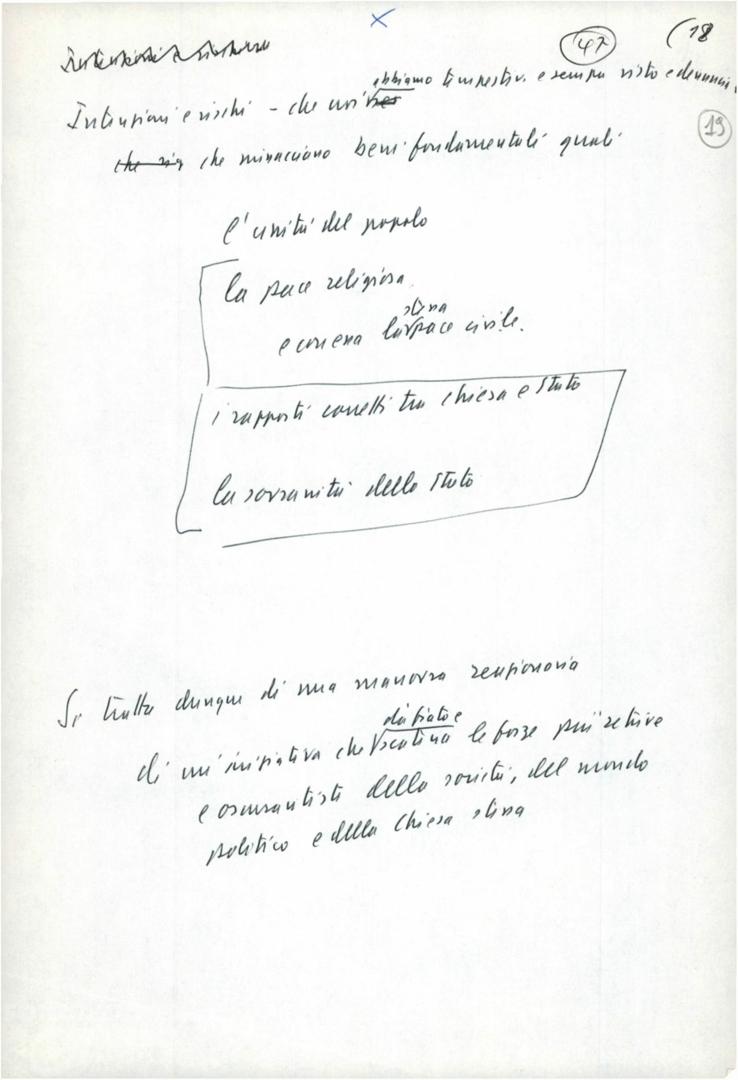 (18
47
19
abbiamo tempestiv. e sempre visto e denunci
Intenzioni e rischi – che noi
che minacciano beni fondamentali quali
l'unità del popolo
la pace religiosa
stessa
e con essa la pace civile.
i rapporti corretti tra chiesa e Stato
la sovranità dello Stato
Si tratta dunque di una manovra reazionaria
dà fiato e
di un'iniziativa che scatena le forze più retrive
e oscurantiste della società, del mondo
politico e della Chiesa stessa